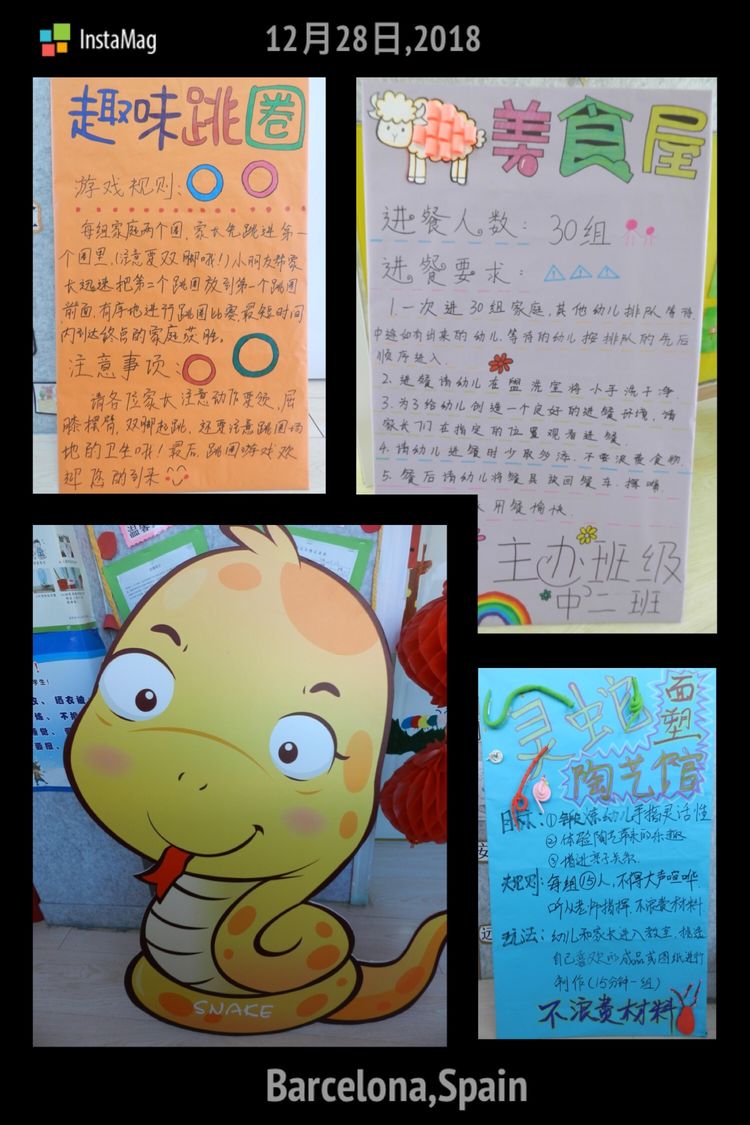 InstaMag
12月28日,2018
趣味跳圈
游戏规则:
每组家庭两个圈,家长先跳进第一
个圈里,(注意要双脚哦!)小朋友帮家
长迅速把第二个跳圈放到第一个跳圈
前面,有序地进行跳圈比赛,最短时间
内到达终点的家庭获胜。
注意事项:
请各位家长注意动作要领,屈
膝摆臂,双脚起跳,还要注意跳圈场
地的卫生哦!最后,跳圈游戏欢
迎您的到来
美食屋
进餐人数: 30组
进餐要求:
1.一次进30组家庭,其他幼儿排队等待,
中途如有出来的幼儿,等待的幼儿按排队的先后
顺序进入.
2.进餐请幼儿在盥洗室将小手洗干净.
3.为了给幼儿创造一个良好的进餐环境,请
家长们在指定的位置观看进餐.
4.请幼儿进餐时少取多添,不要浪费食物.
5.餐后请幼儿将餐具放回餐车,擦嘴.
用餐愉快.
主办班级
中二班
SNAKE
灵蛇面塑
陶艺馆
目标:①锻炼幼儿手指灵活性
②体验陶艺带来的乐趣
③增进亲子关系
规则:每组⑮人,不得大声喧哗
听从老师指挥,不浪费材料
玩法:幼儿和家长进入教室,挑选
自己喜欢的成品或图纸进行
制作(15分钟一组)
不浪费材料
Barcelona,Spain